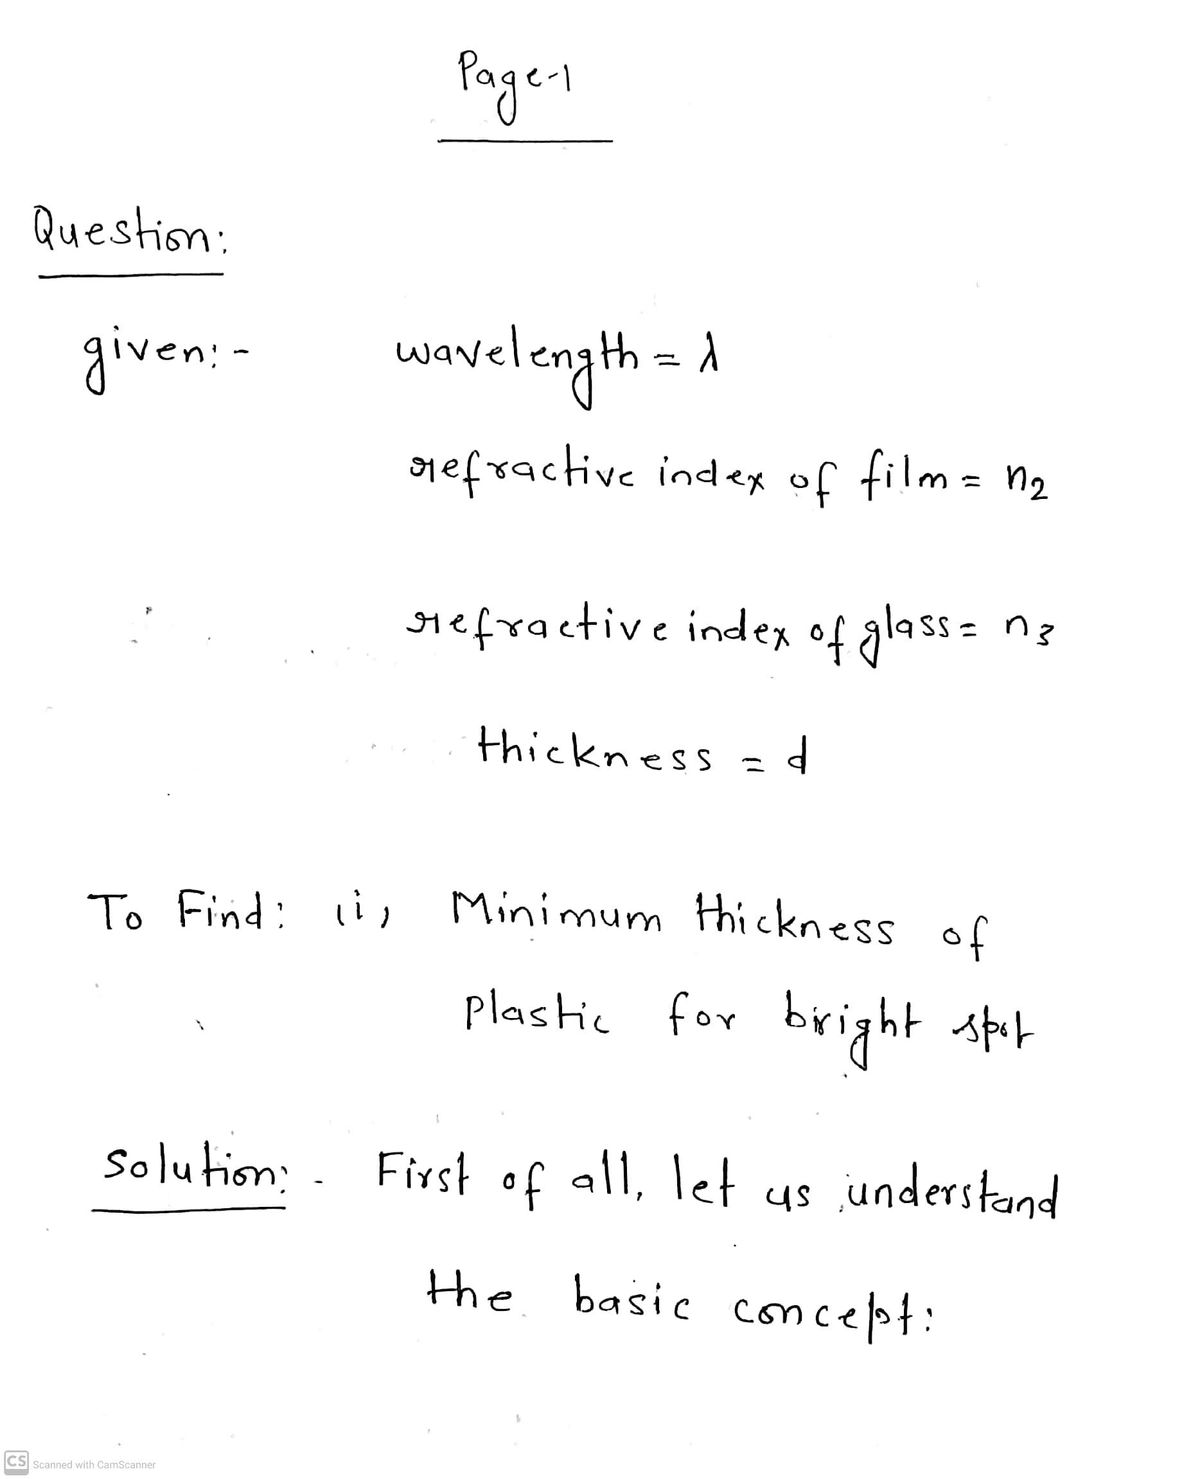 Page-1
Question:
given:- wavelength = λ
refractive index of film = n2
refractive index of glass = n3
thickness = d
To Find: (i) Minimum thickness of
Plastic for bright spot
Solution:- First of all, let us understand
the basic concept:
CS Scanned with CamScanner